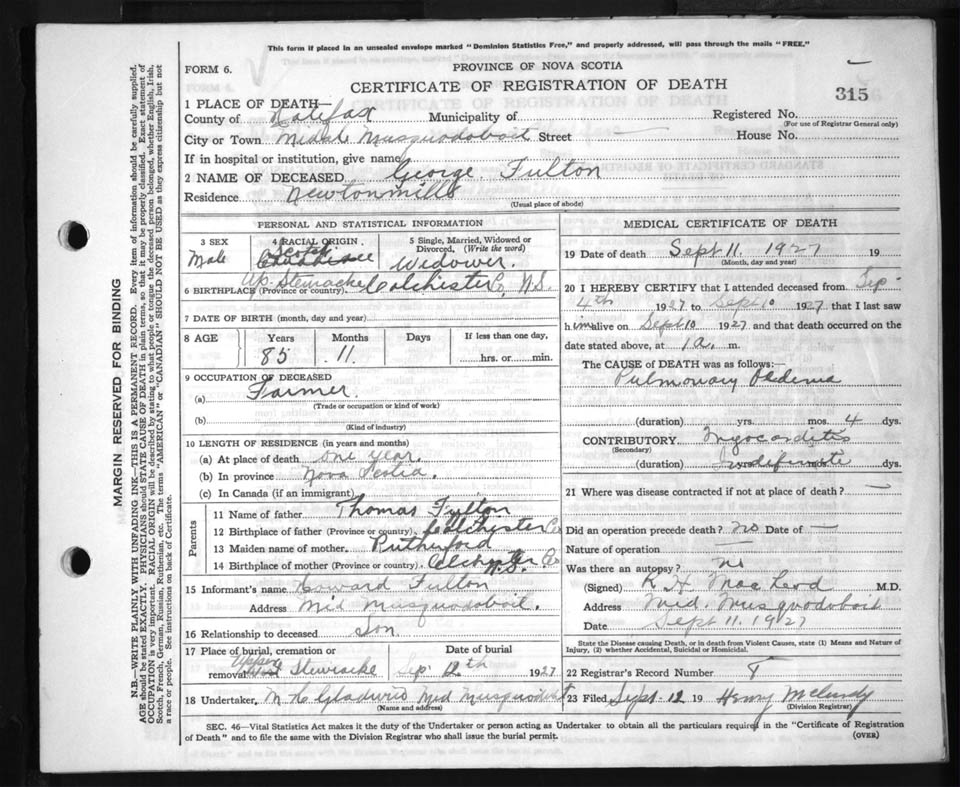 This form if placed in an unsealed envelope marked "Dominion Statistics Free," and properly addressed, will pass through the mails "FREE."
FORM 6.
PROVINCE OF NOVA SCOTIA
CERTIFICATE OF REGISTRATION OF DEATH
315
1 PLACE OF DEATH—
County of Halifax Municipality of Registered No.
(For use of Registrar General only)
City or Town Middle Musquodoboit Street House No.
If in hospital or institution, give name
2 NAME OF DECEASED George Fulton
Residence Newtonmills
(Usual place of abode)
PERSONAL AND STATISTICAL INFORMATION
3 SEX 4 RACIAL ORIGIN 5 Single, Married, Widowed or Divorced. (Write the word)
Male Scotch Widower.
6 BIRTHPLACE (Province or country) Up. Stewiacke Colchester Co, N.S.
7 DATE OF BIRTH (month, day and year)
8 AGE Years Months Days If less than one day,
85 11 hrs. or min.
9 OCCUPATION OF DECEASED
(a) Farmer.
(Trade or occupation or kind of work)
(b)
(Kind of industry)
10 LENGTH OF RESIDENCE (in years and months)
(a) At place of death one year.
(b) In province Nova Scotia.
(c) In Canada (if an immigrant)
Parents
11 Name of father Thomas Fulton
12 Birthplace of father (Province or country) Colchester Co
13 Maiden name of mother Rutherford
14 Birthplace of mother (Province or country) Colchester Co N.S.
15 Informant's name Howard Fulton
Address Mid Musquodoboit.
16 Relationship to deceased Son
17 Place of burial, cremation or removal Date of burial
Upper Stewiacke Sep' 12th 1927
18 Undertaker Mid Musquodoboit
(Name and address)
MEDICAL CERTIFICATE OF DEATH
19 Date of death Sept 11. 1927 19
(Month, day and year)
20 I HEREBY CERTIFY that I attended deceased from Sep
4th 1927 to Sept 10 1927 that I last saw
him alive on Sept 10 1927 and that death occurred on the
date stated above, at 1 a. m.
The CAUSE OF DEATH was as follows:
Pulmonary Oedema
(duration) yrs. mos. 4 dys.
CONTRIBUTORY Myocarditis
(Secondary)
(duration) Indefinite dys.
21 Where was disease contracted if not at place of death? —
Did an operation precede death? no Date of —
Nature of operation —
Was there an autopsy? no
(Signed) R H MacLeod M.D.
Address Mid. Musquodoboit
Date Sept 11. 1927
State the Disease causing Death, or in death from Violent Causes, state (1) Means and Nature of Injury, (2) whether Accidental, Suicidal or Homicidal.
22 Registrar's Record Number 8
23 Filed Sept. 12 19 Henry McCurdy
(Division Registrar)
SEC. 46—Vital Statistics Act makes it the duty of the Undertaker or person acting as Undertaker to obtain all the particulars required in the "Certificate of Registration
of Death" and to file the same with the Division Registrar who shall issue the burial permit.
(OVER)
MARGIN RESERVED FOR BINDING
N.B.—WRITE PLAINLY WITH UNFADING INK—THIS IS A PERMANENT RECORD. Every item of information should be carefully supplied.
AGE should be stated EXACTLY. PHYSICIANS should STATE CAUSE OF DEATH in plain terms, so that it may be properly classified. Exact statement of
OCCUPATION is very important. RACIAL ORIGIN will be described by stating to what people or tongue the deceased person belonged, whether English, Irish,
Scotch, French, German, Russian, Ruthenian, etc. The terms "AMERICAN" or "CANADIAN" SHOULD NOT BE USED as they express citizenship but not
a race or people. See instructions on back of Certificate.